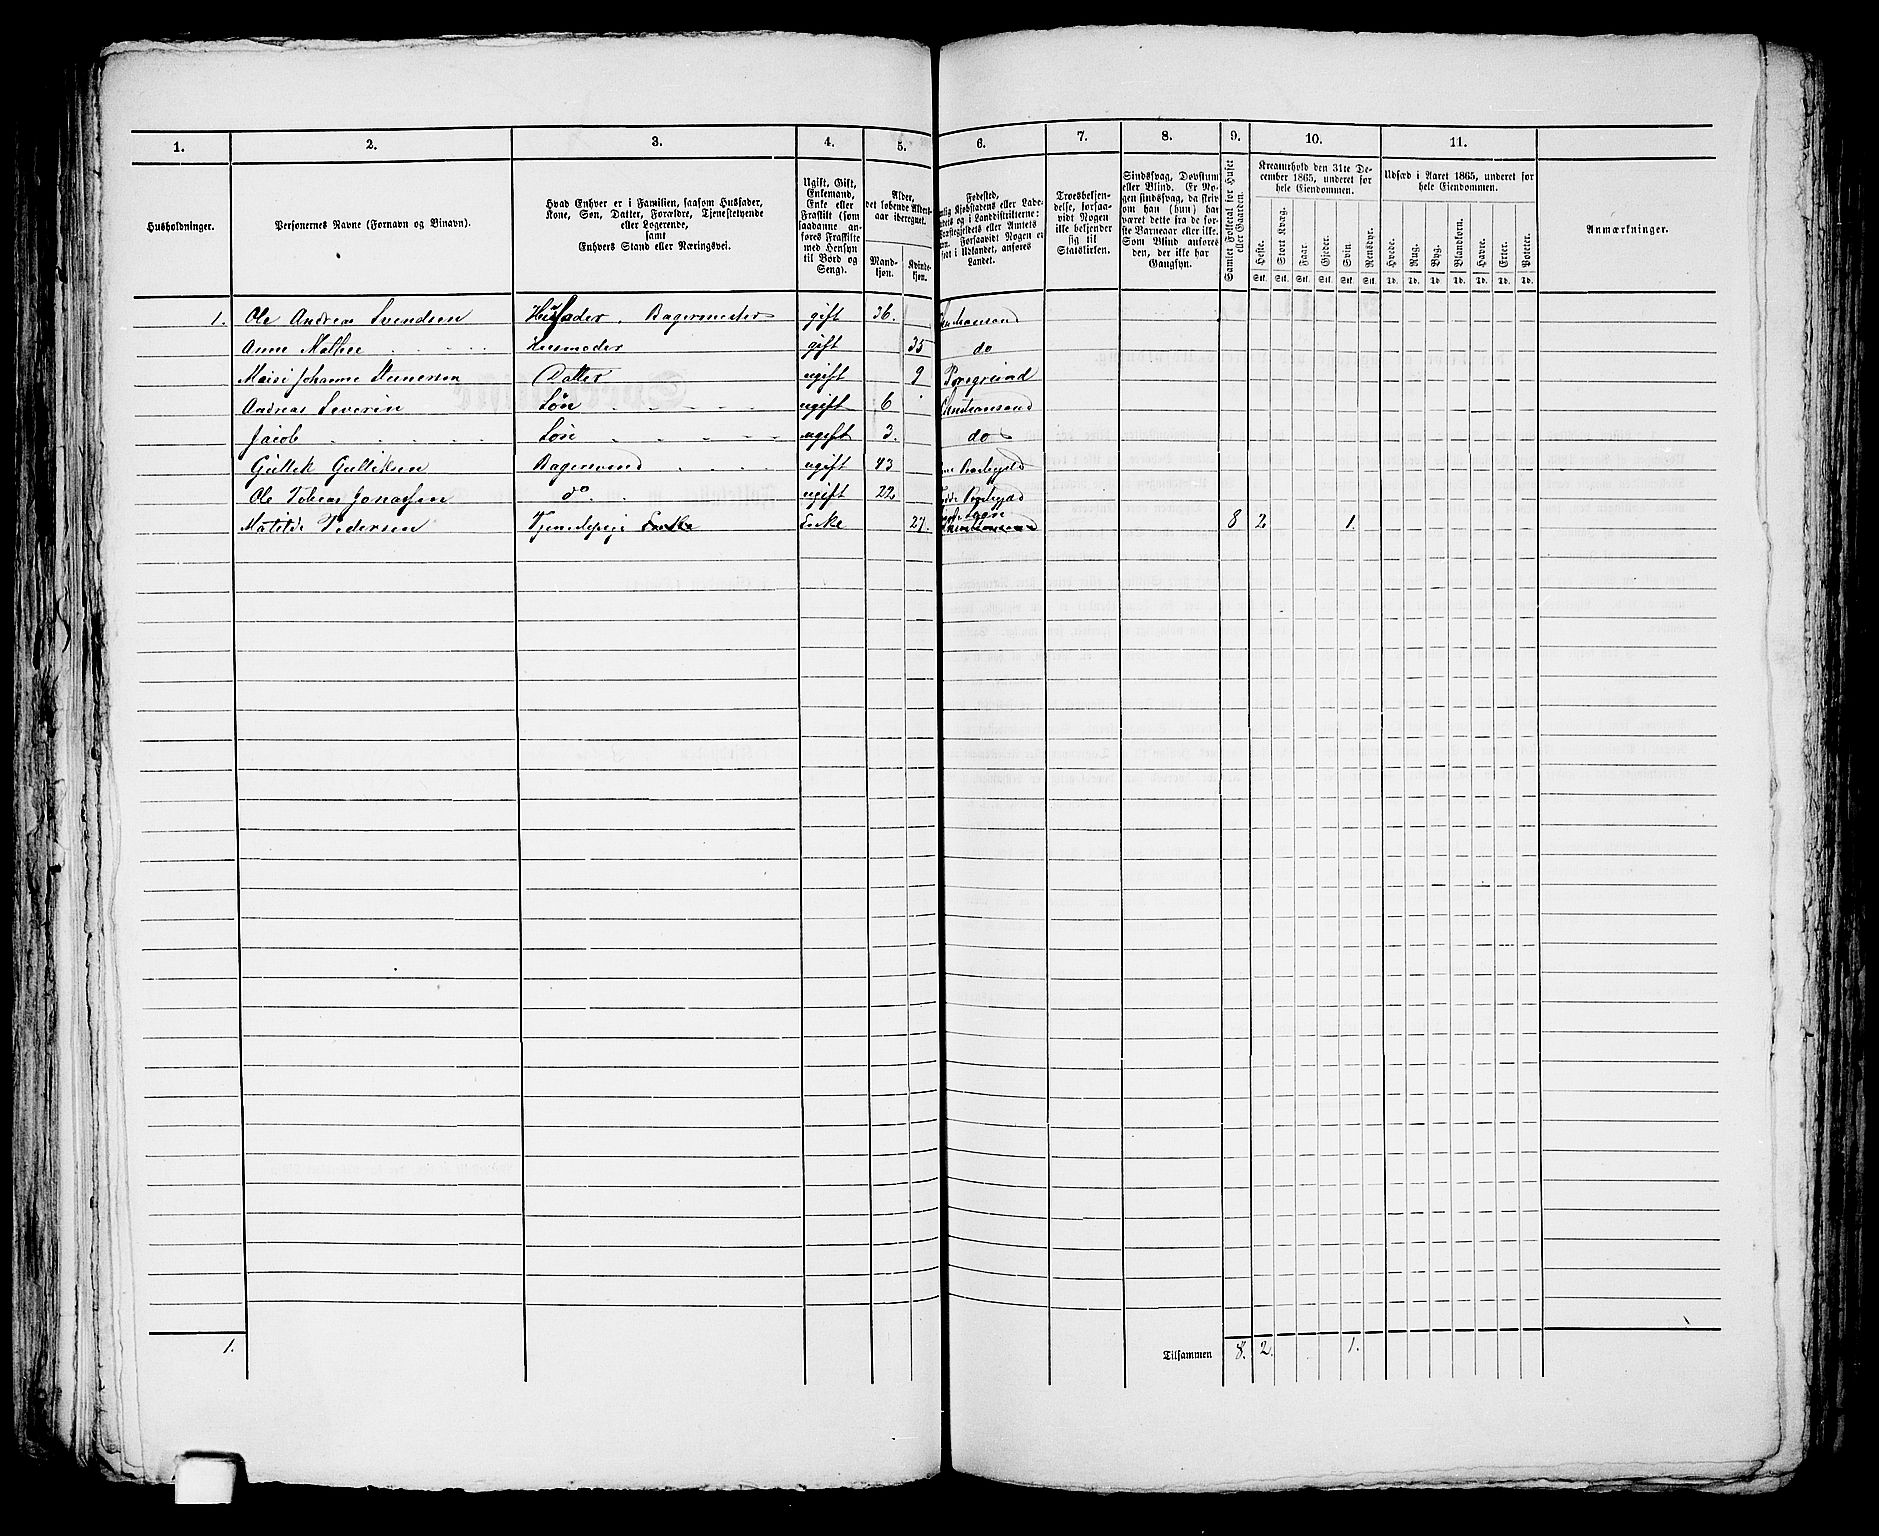 1. 2. 3. 4. 5. 6. 7. 8. 9. 10. 11.
Husholdninger.
Personernes Navne (Fornavn og Binavn).
Hvad Enhver er i Familien, saasom Husfader,
Kone, Søn, Datter, Forældre, Tjenestetyende
eller Logerende,
samt
Enhvers Stand eller Næringsvei.
Ugift, Gift,
Enkemand,
Enke eller
Fraskilt (som
saadanne an-
føres Fraskilte
med Hensyn
til Bord og
Seng).
Alder,
det løbende Alders-
aar iberegnet.
Mand-
kjøn.
Kvinde-
kjøn.
Fødested,
Kjøbstadens eller Lade-
og i Landdistrikterne:
eller Amtets
Forsaavidt Nogen er
i Udlandet, anføres
Landet.
Troesbekjen-
delse, forsaa-
vidt Nogen
ikke bekjender
sig til
Statskirken.
Sindssvag, Døvstum
eller Blind. Er No-
gen sindssvag, da skriv
om han (hun) har
været dette fra de før-
ste Barneaar eller ikke.
Som Blind anføres
den, der ikke har
Gangsyn.
Samlet Folketal for Huset
eller Gaarden.
Kreaturhold den 31te De-
cember 1865, underet for
hele Eiendommen.
Heste. Stort Kvæg. Faar. Gjeder. Svin. Rensdyr.
Stk. Stk. Stk. Stk. Stk. Stk.
Udsæd i Aaret 1865, underet for
hele Eiendommen.
Hvede. Rug. Byg. Blandkorn. Havre. Erter. Poteter.
Td. Td. Td. Td. Td. Td. Td.
Anmærkninger.
1. Ole Andreas Svendsen Husfader, Bagermester gift 36.
Anne Mathee Huusmoder gift 35 do
Johanne Datter ugift 9
Andreas Severin Søn ugift 6
Jacob ugift 3. do
Gullik Gulliksen Bagersvend ugift 43
Ole Tobias Jonassen do. ugift 22
Matilde Pedersen Enke 27. 8 2 1.
1. Tilsammen 8. 2. 1.